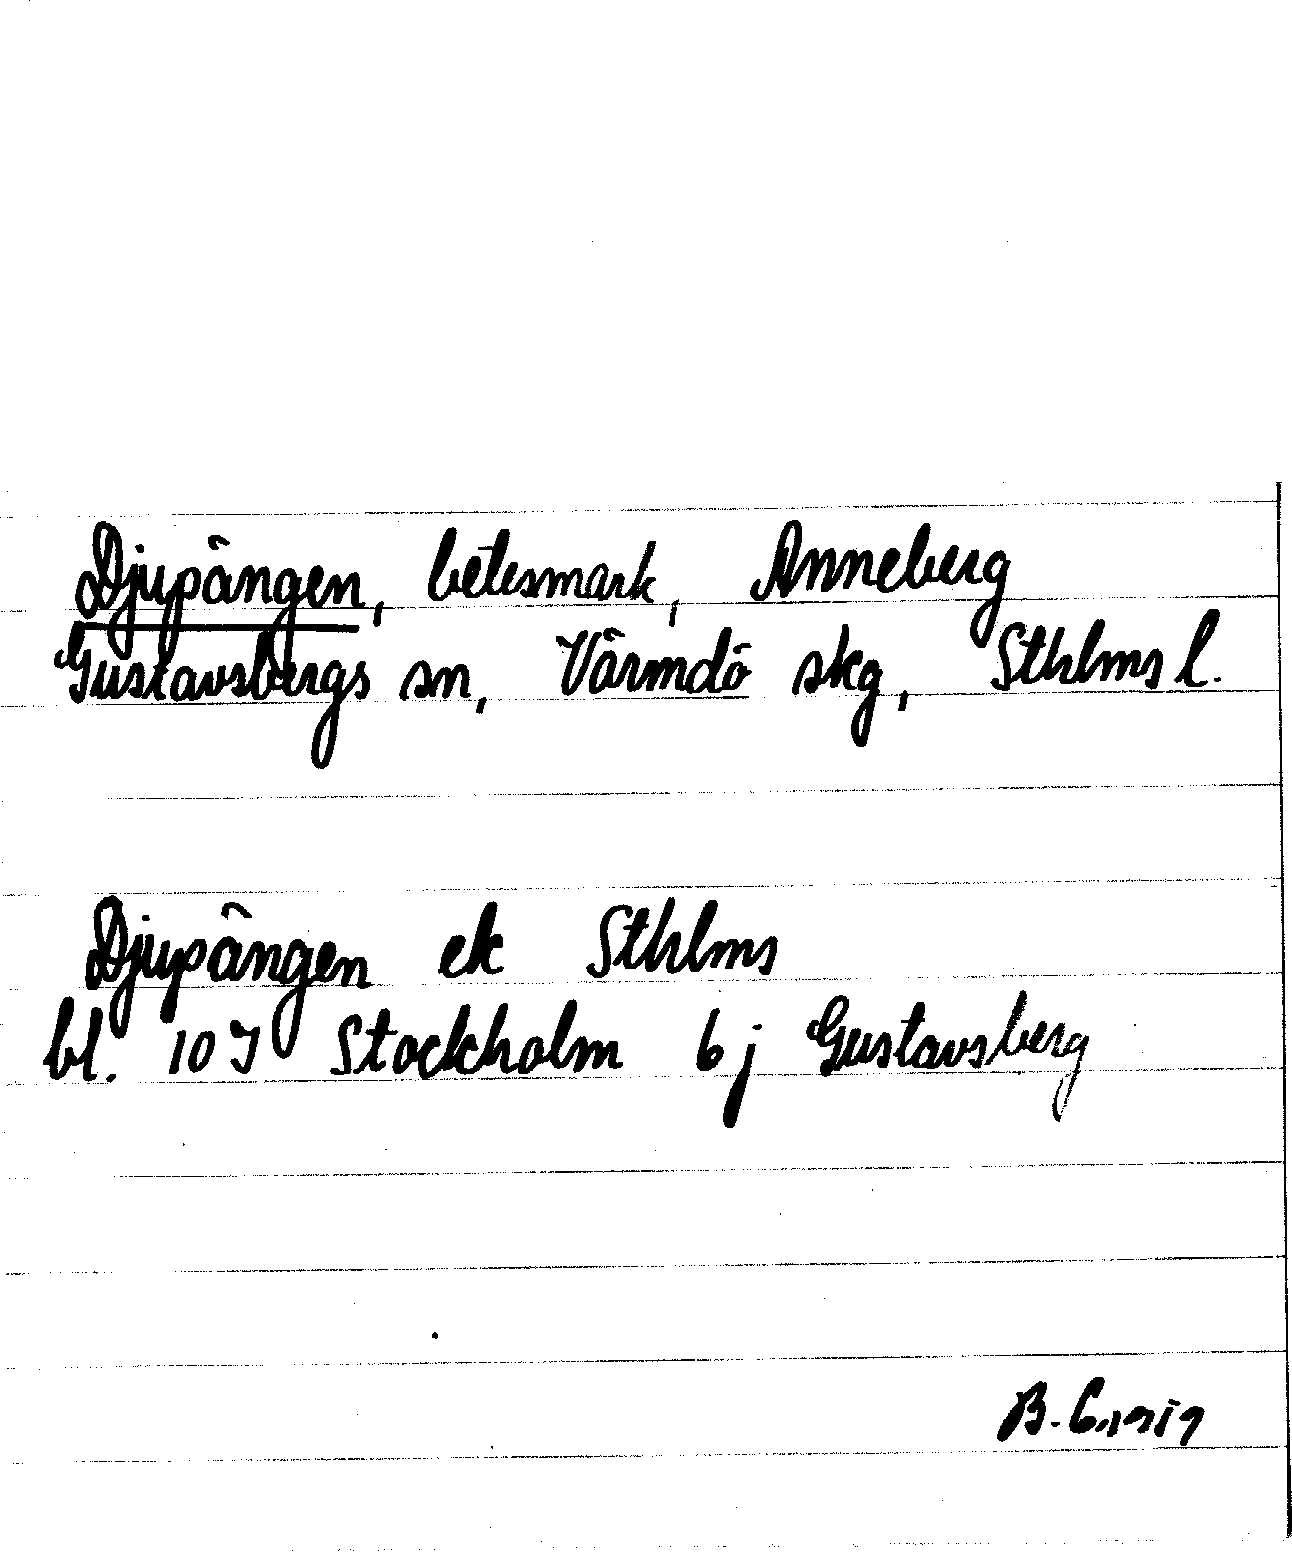 Djupängen, betesmark, Anneberg
Gustavsbergs sn, Värmdö skg, Sthlms l.
Djupängen ek Sthlms
bl. 10 I Stockholm 6 j Gustavsberg
B.